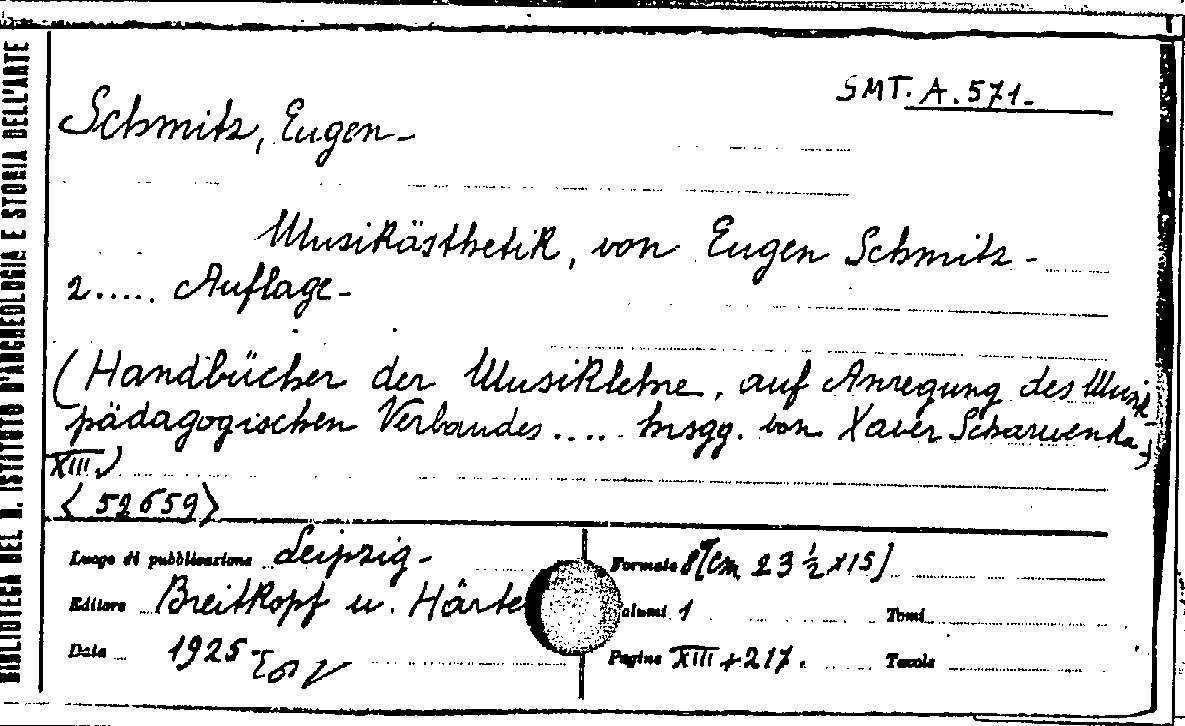 BIBLIOTECA DEL R. ISTITUTO D'ARCHEOLOGIA E STORIA DELL'ARTE
SMT. A. 571.
Schmitz, Eugen-
Musikästhetik, von Eugen Schmitz-
2..... Auflage-
(Handbücher der Musiklehre, auf Anregung des Musik
pädagogischen Verbandes .... hrsgg. von Xaver Scharwenka,
XIII.)
<52659>
Luogo di pubblicazione Leipzig-
Formato 8°[cm 23 ½ x15]
Editore Breitkopf u. Härte
Volumi 1 Tomi
Data 1925-
Pagine XIII+217. Tavole